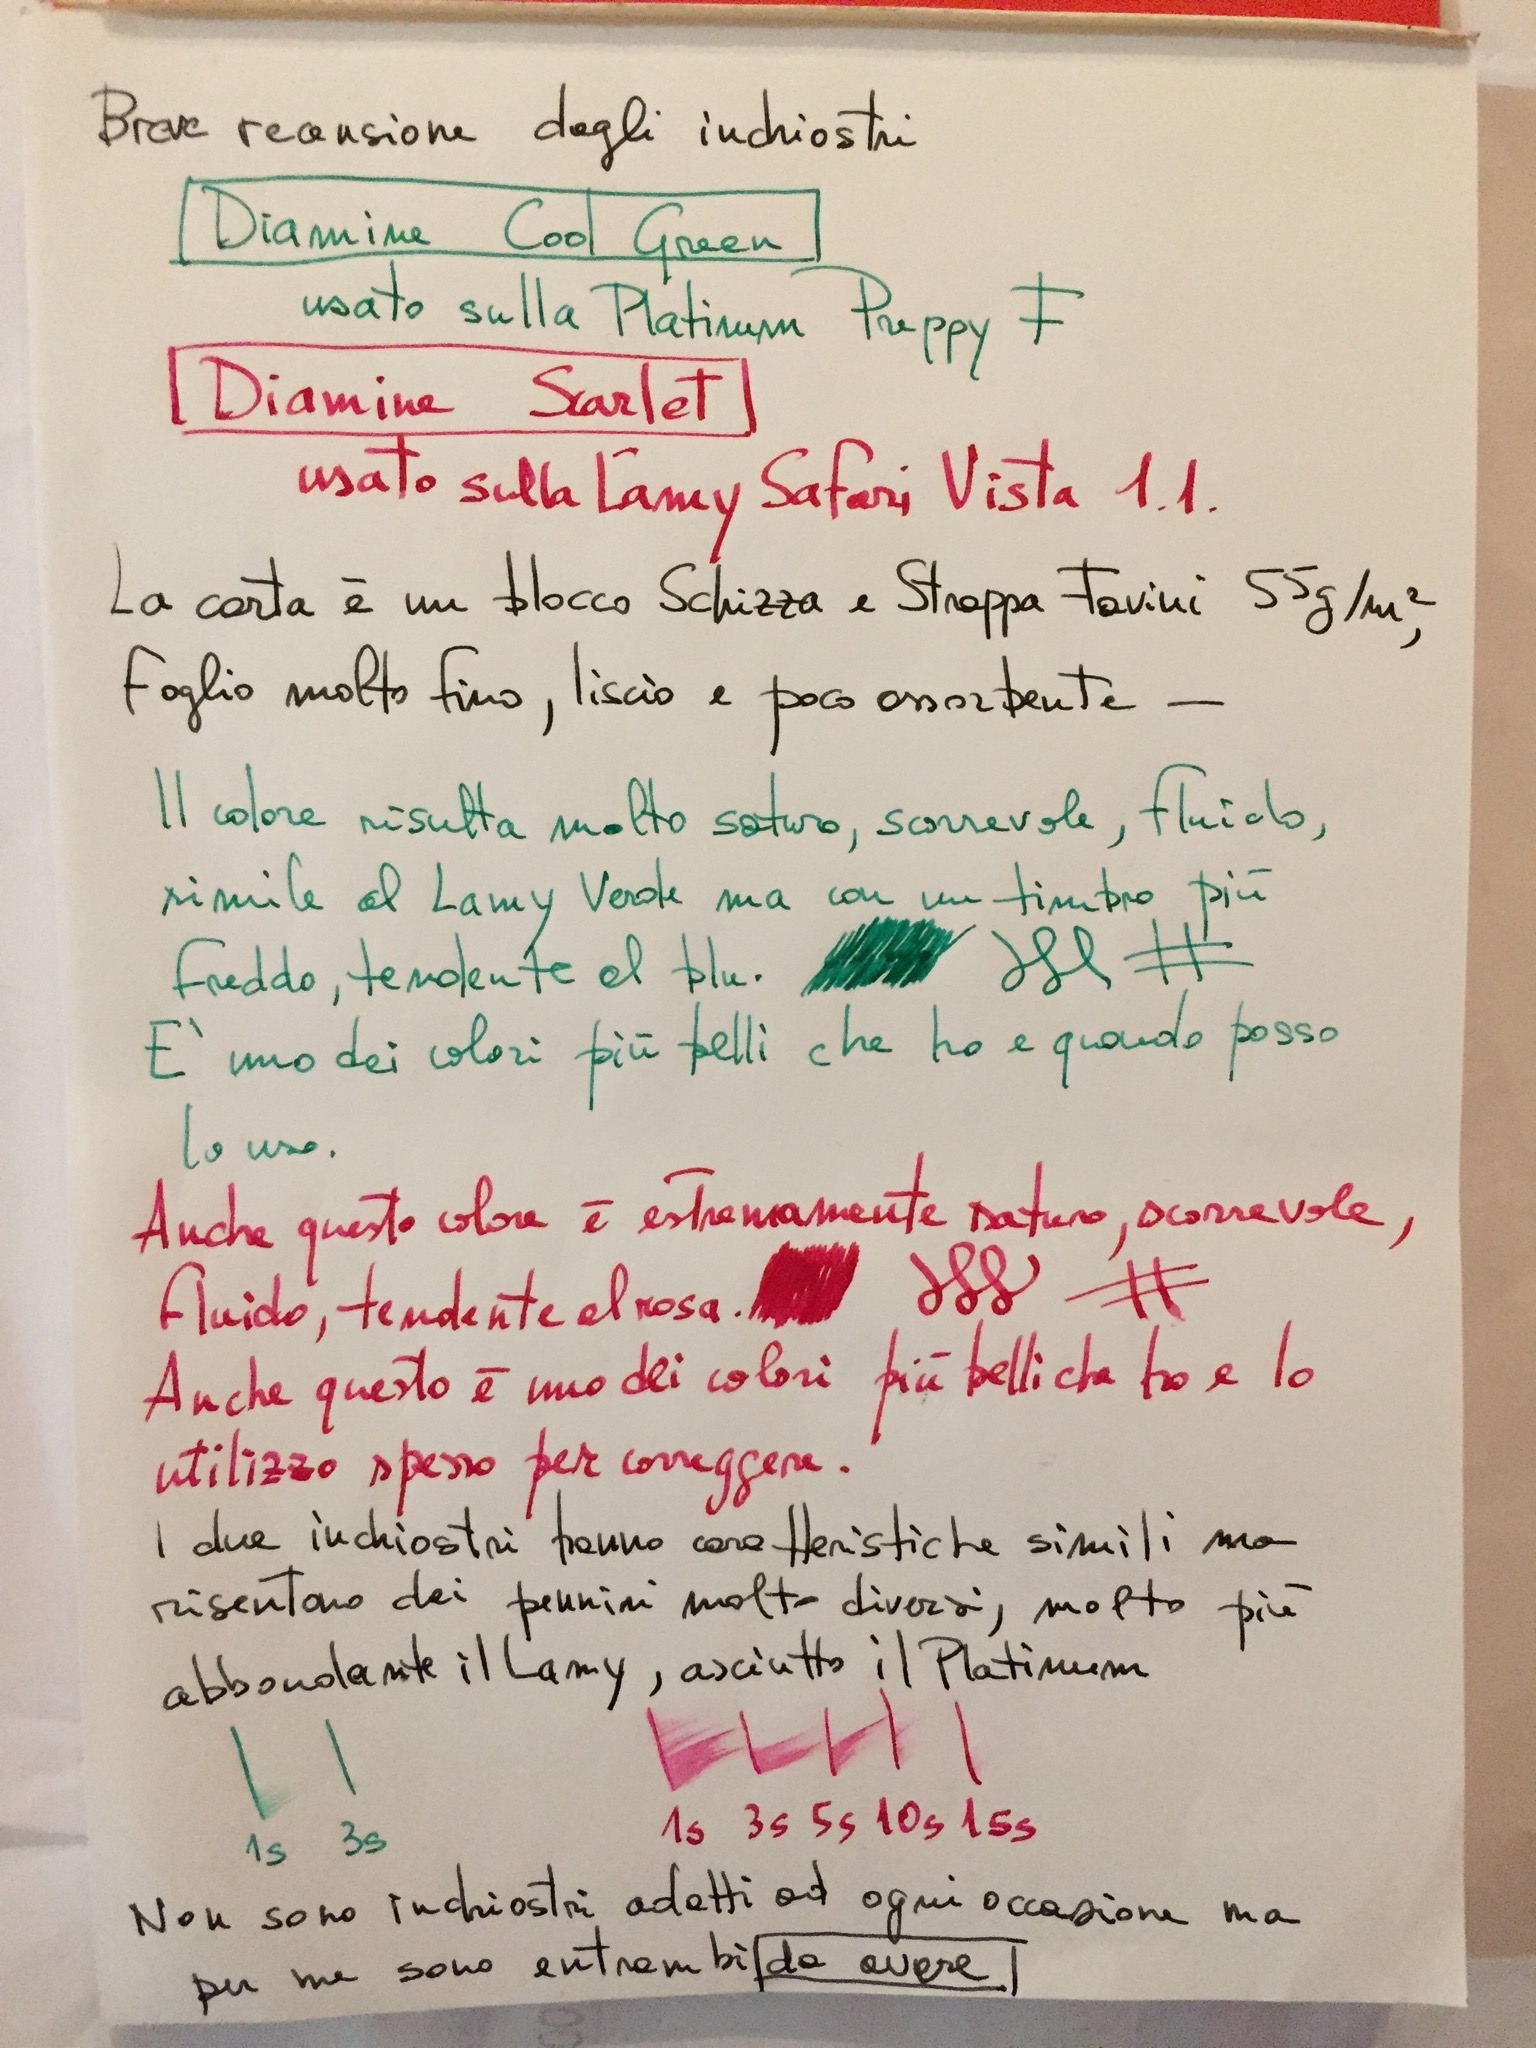 Breve recensione degli inchiostri
Diamine Cool Green
usato sulla Platinum Preppy F
Diamine Scarlet
usato sulla Lamy Safari Vista 1.1.
La carta è un blocco Schizza e Strappa Favini 55g/m²,
Foglio molto fino, liscio e poco assorbente —
Il colore risulta molto saturo, scorrevole, fluido,
simile al Lamy Verde ma con un timbro più
freddo, tendente al blu.
E' uno dei colori più belli che ho e quando posso
lo uso.
Anche questo colore è estremamente saturo, scorrevole,
fluido, tendente al rosa.
Anche questo è uno dei colori più belli che ho e lo
utilizzo spesso per correggere.
I due inchiostri hanno caratteristiche simili ma
risentono dei pennini molto diversi, molto più
abbondante il Lamy, asciutto il Platinum
1s 3s 1s 3s 5s 10s 15s
Non sono inchiostri adatti ad ogni occasione ma
per me sono entrambi da avere